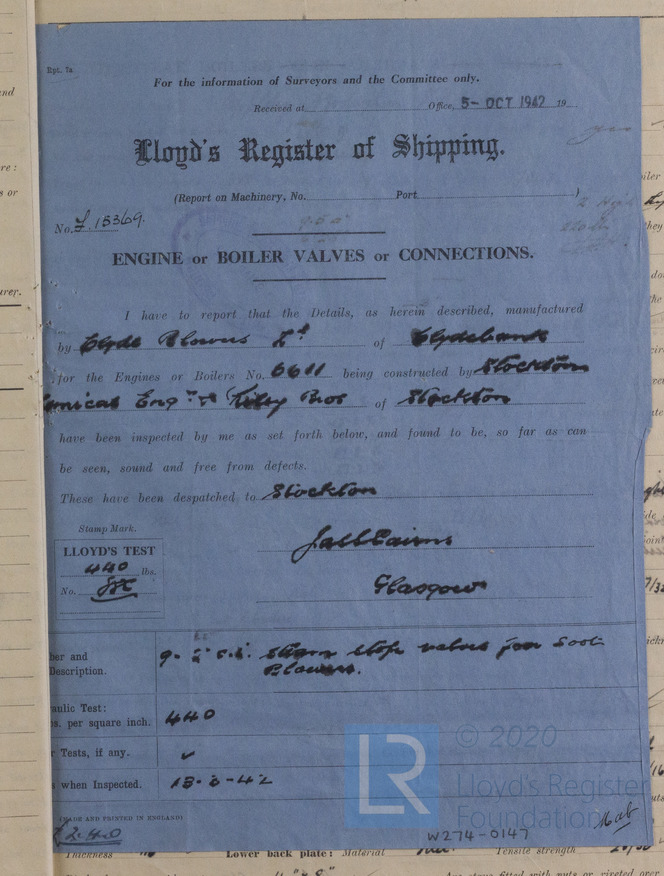 Rpt. 7a
For the information of Surveyors and the Committee only.
Received at Office, 5- OCT 1942 19
Lloyd's Register of Shipping.
(Report on Machinery, No. Port )
No. 15369.
ENGINE or BOILER VALVES or CONNECTIONS.
I have to report that the Details, as herein described, manufactured
by Clyde Blowers Ld of Clydebank
for the Engines or Boilers No. 6611 being constructed by Stockton
Engrs & Riley Bros of Stockton
have been inspected by me as set forth below, and found to be, so far as can
be seen, sound and free from defects.
These have been despatched to Stockton
Stamp Mark.
LLOYD'S TEST
440 lbs.
No.
Glasgow
ber and
Description.
steam stop valves for Soot
Blowers.
aulic Test:
s. per square inch. 440
r Tests, if any.
s when Inspected. 13-8-42
(MADE AND PRINTED IN ENGLAND)
LR
© 2020
Lloyd's Register
Foundation
W274-0147
Thickness Lower back plate: Material Tensile strength